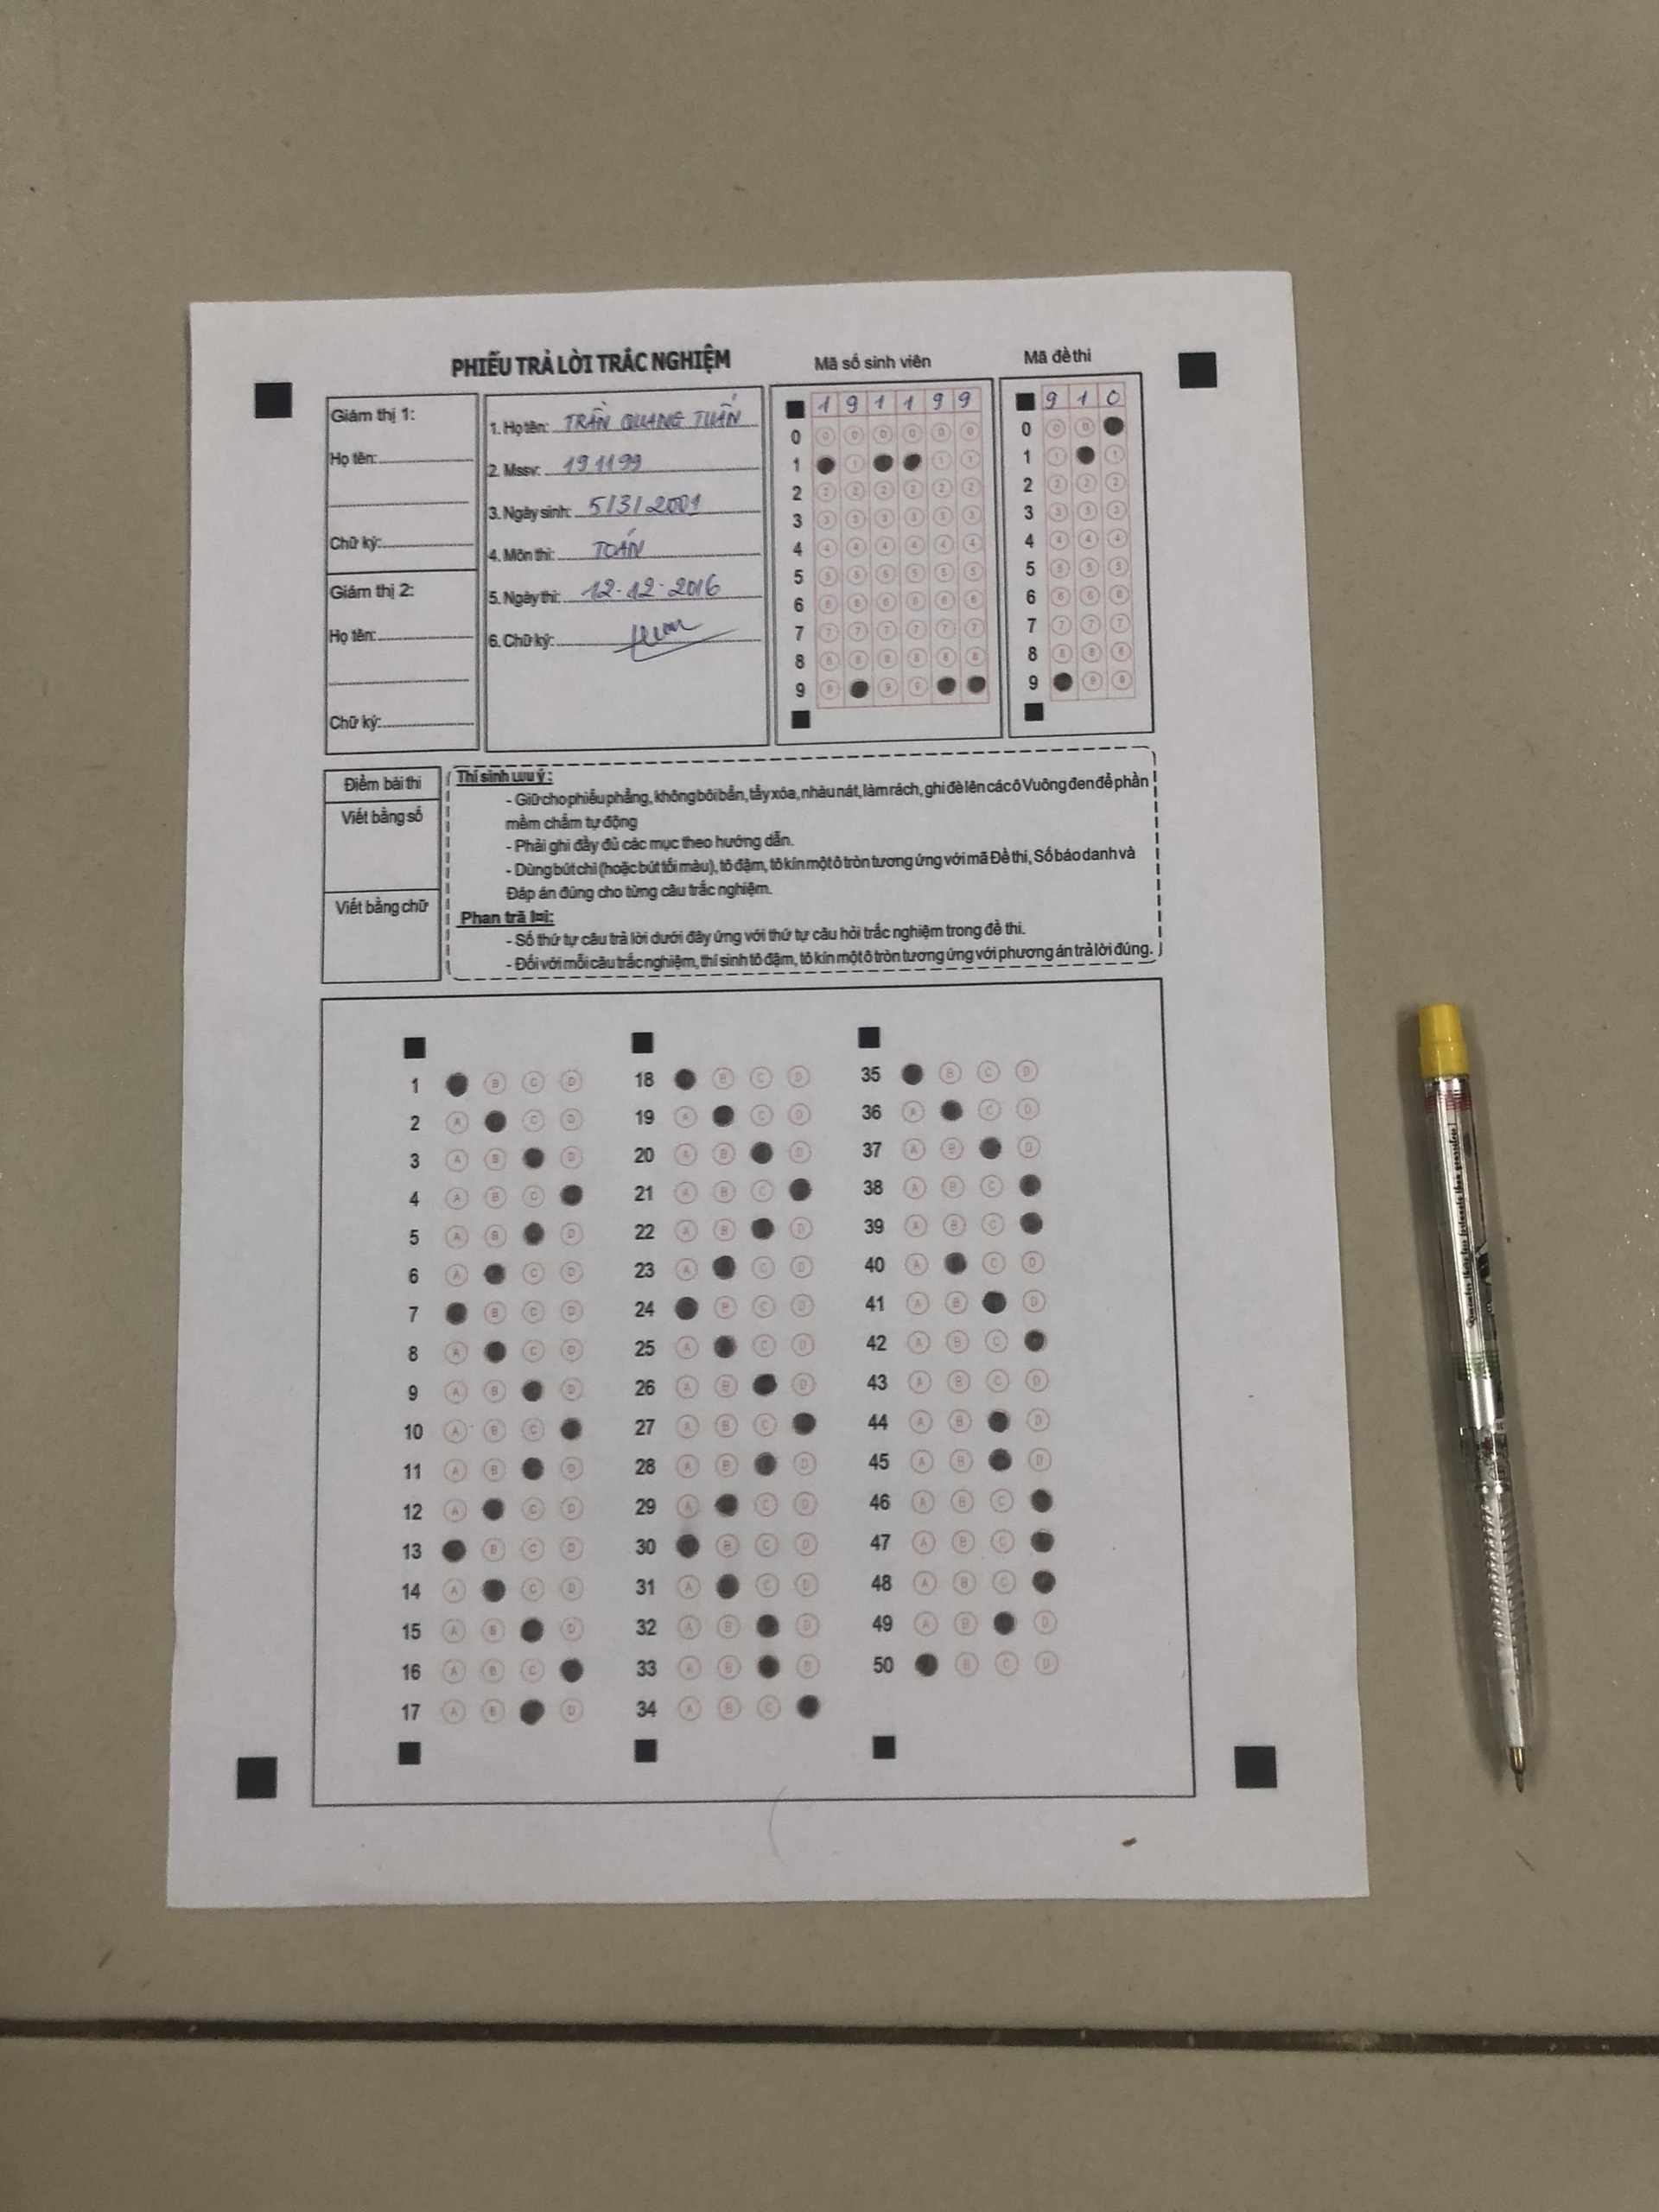 PHIẾU TRẢ LỜI TRẮC NGHIỆM
Mã số sinh viên
Mã đề thi
Giám thị 1:
Họ tên:
Chữ ký:
Giám thị 2:
Họ tên:
Chữ ký:
1. Họ tên: TRẦN QUANG TUẤN
2. Mssv: 191199
3. Ngày sinh: 5/3/2001
4. Môn thi: TOÁN
5. Ngày thi: 12-12-2016
6. Chữ ký:
1 9 1 1 9 9
0 0 0 0 0 0 0
1 1 1 1
2 2 2 2 2 2 2
3 3 3 3 3 3 3
4 4 4 4 4 4 4
5 5 5 5 5 5 5
6 6 6 6 6 6 6
7 7 7 7 7 7 7
8 8 8 8 8 8 8
9 9 9 9
9 1 0
0 0 0
1 1 1
2 2 2 2
3 3 3 3
4 4 4 4
5 5 5 5
6 6 6 6
7 7 7 7
8 8 8 8
9 9 9
Điểm bài thi
Viết bằng số
Viết bằng chữ
Thí sinh lưu ý:
- Giữ cho phiếu phẳng, không bôi bẩn, tẩy xóa, nhàu nát, làm rách, ghi đè lên các ô Vuông đen để phần
mềm chấm tự động
- Phải ghi đầy đủ các mục theo hướng dẫn.
- Dùng bút chì (hoặc bút tối màu), tô đậm, tô kín một ô tròn tương ứng với mã Đề thi, Số báo danh và
Đáp án đúng cho từng câu trắc nghiệm.
Phan trã
- Số thứ tự câu trả lời dưới đây ứng với thứ tự câu hỏi trắc nghiệm trong đề thi.
- Đối với mỗi câu trắc nghiệm, thí sinh tô đậm, tô kín một ô tròn tương ứng với phương án trả lời đúng.
1 B C D
2 A C D
3 A B D
4 A B C
5 A B D
6 A C D
7 B C D
8 A C D
9 A B D
10 A B C
11 A B D
12 A C D
13 B C D
14 A C D
15 A B D
16 A B C
17 A B D
18 B C D
19 A C D
20 A B D
21 A B C
22 A B D
23 A C D
24 B C D
25 A C D
26 A B D
27 A B C
28 A B D
29 A C D
30 B C D
31 A C D
32 A B D
33 A B D
34 A B C
35 B C D
36 A C D
37 A B D
38 A B C
39 A B C
40 A C D
41 A B D
42 A B C
43 A B C D
44 A B D
45 A B D
46 A B C
47 A B C
48 A B C
49 A B D
50 B C D